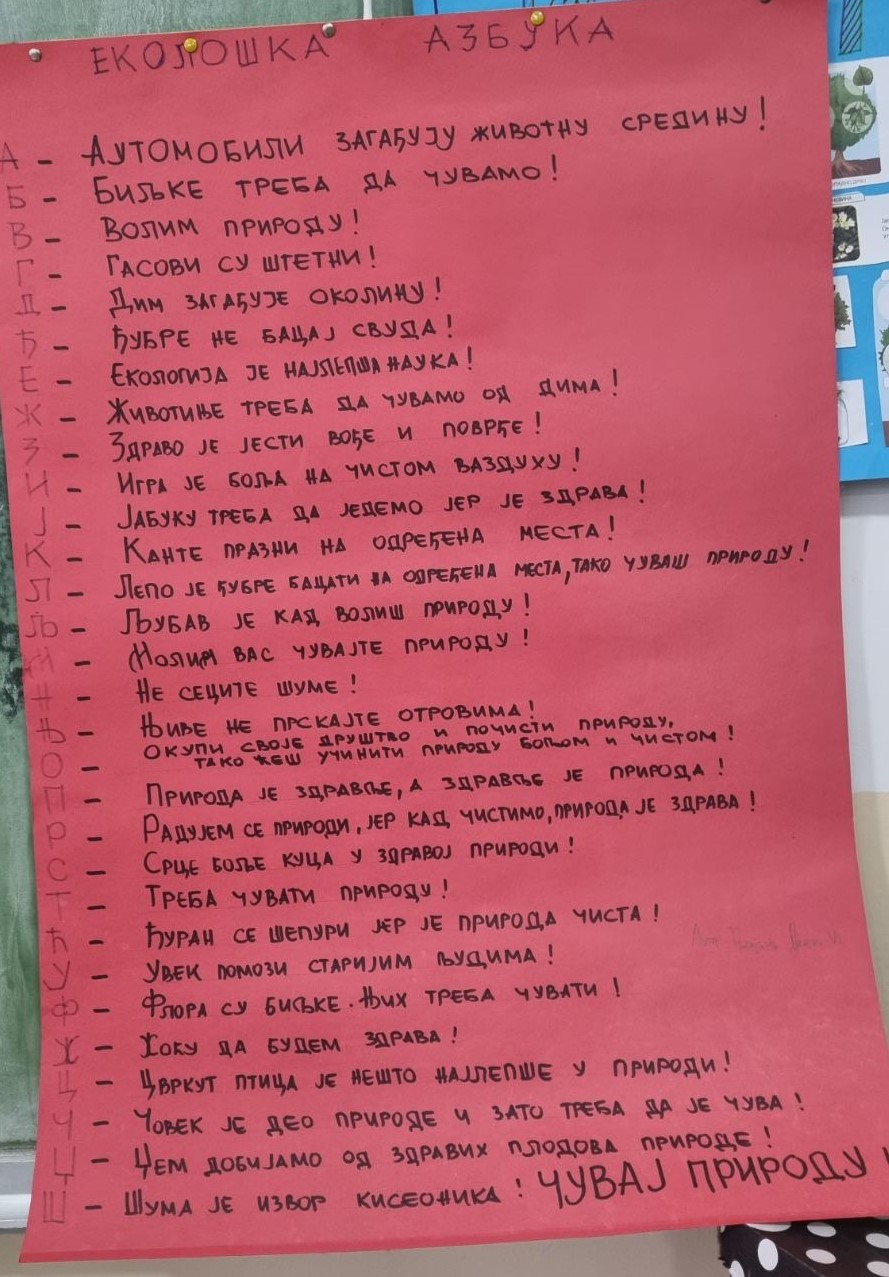 ЕКОЛОШКА АЗБУКА
А - АУТОМОБИЛИ ЗАГАЂУЈУ ЖИВОТНУ СРЕДИНУ!
Б - БИЉКЕ ТРЕБА ДА ЧУВАМО!
В - ВОЛИМ ПРИРОДУ!
Г - ГАСОВИ СУ ШТЕТНИ!
Д - ДИМ ЗАГАЂУЈЕ ОКОЛИНУ!
Ђ - ЂУБРЕ НЕ БАЦАЈ СВУДА!
Е - ЕКОЛОГИЈА ЈЕ НАЈЛЕПША НАУКА!
Ж - ЖИВОТИЊЕ ТРЕБА ДА ЧУВАМО ОД ДИМА!
З - ЗДРАВО ЈЕ ЈЕСТИ ВОЂЕ И ПОВРЂЕ!
И - ИГРА ЈЕ БОЉА НА ЧИСТОМ ВАЗДУХУ!
Ј - ЈАБУКУ ТРЕБА ДА ЈЕДЕМО ЈЕР ЈЕ ЗДРАВА!
К - КАНТЕ ПРАЗНИ НА ОДРЕЂЕНА МЕСТА!
Л - ЛЕПО ЈЕ ЂУБРЕ БАЦАТИ НА ОДРЕЂЕНА МЕСТА, ТАКО ЧУВАШ ПРИРОДУ!
Љ - ЉУБАВ ЈЕ КАД ВОЛИШ ПРИРОДУ!
М - МОЛИМ ВАС ЧУВАЈТЕ ПРИРОДУ!
Н - НЕ СЕЦИТЕ ШУМЕ!
Њ - ЊИВЕ НЕ ПРСКАЈТЕ ОТРОВИМА!
О - ОКУПИ СВОЈЕ ДРУШТВО И ПОЧИСТИ ПРИРОДУ,
ТАКО ЋЕШ УЧИНИТИ ПРИРОДУ БОЉОМ И ЧИСТОМ!
П - ПРИРОДА ЈЕ ЗДРАВЉЕ, А ЗДРАВЉЕ ЈЕ ПРИРОДА!
Р - РАДУЈЕМ СЕ ПРИРОДИ, ЈЕР КАД ЧИСТИМО, ПРИРОДА ЈЕ ЗДРАВА!
С - СРЦЕ БОЉЕ КУЦА У ЗДРАВОЈ ПРИРОДИ!
Т - ТРЕБА ЧУВАТИ ПРИРОДУ!
Ћ - ЋУРАН СЕ ШЕПУРИ ЈЕР ЈЕ ПРИРОДА ЧИСТА!
У - УВЕК ПОМОЗИ СТАРИЈИМ ЉУДИМА!
Ф - ФЛОРА СУ БИЉКЕ. ЊИХ ТРЕБА ЧУВАТИ!
Х - ХОЋУ ДА БУДЕМ ЗДРАВА!
Ц - ЦВРКУТ ПТИЦА ЈЕ НЕШТО НАЈЛЕПШЕ У ПРИРОДИ!
Ч - ЧОВЕК ЈЕ ДЕО ПРИРОДЕ И ЗАТО ТРЕБА ДА ЈЕ ЧУВА!
Џ - ЏЕМ ДОБИЈАМО ОД ЗДРАВИХ ПЛОДОВА ПРИРОДЕ!
Ш - ШУМА ЈЕ ИЗВОР КИСЕОНИКА! ЧУВАЈ ПРИРОДУ!